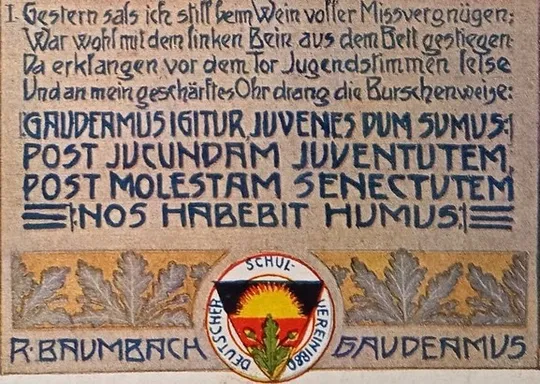 I. Gestern sass ich still beim Wein voller Missvergnügen;
War wohl mit dem linken Bein aus dem Bett gestiegen.
Da erklangen vor dem Tor Jugendstimmen leise
Und an mein geschärftes Ohr drang die Burschenweise:
|:GAUDEAMUS IGITUR, JUVENES DUM SUMUS:|
POST JUCUNDAM JUVENTUTEM,
POST MOLESTAM SENECTUTEM
|:NOS HABEBIT HUMUS:|
DEUTSCHER SCHUL-VEREIN 1880
R. BAUMBACH GAUDEAMUS